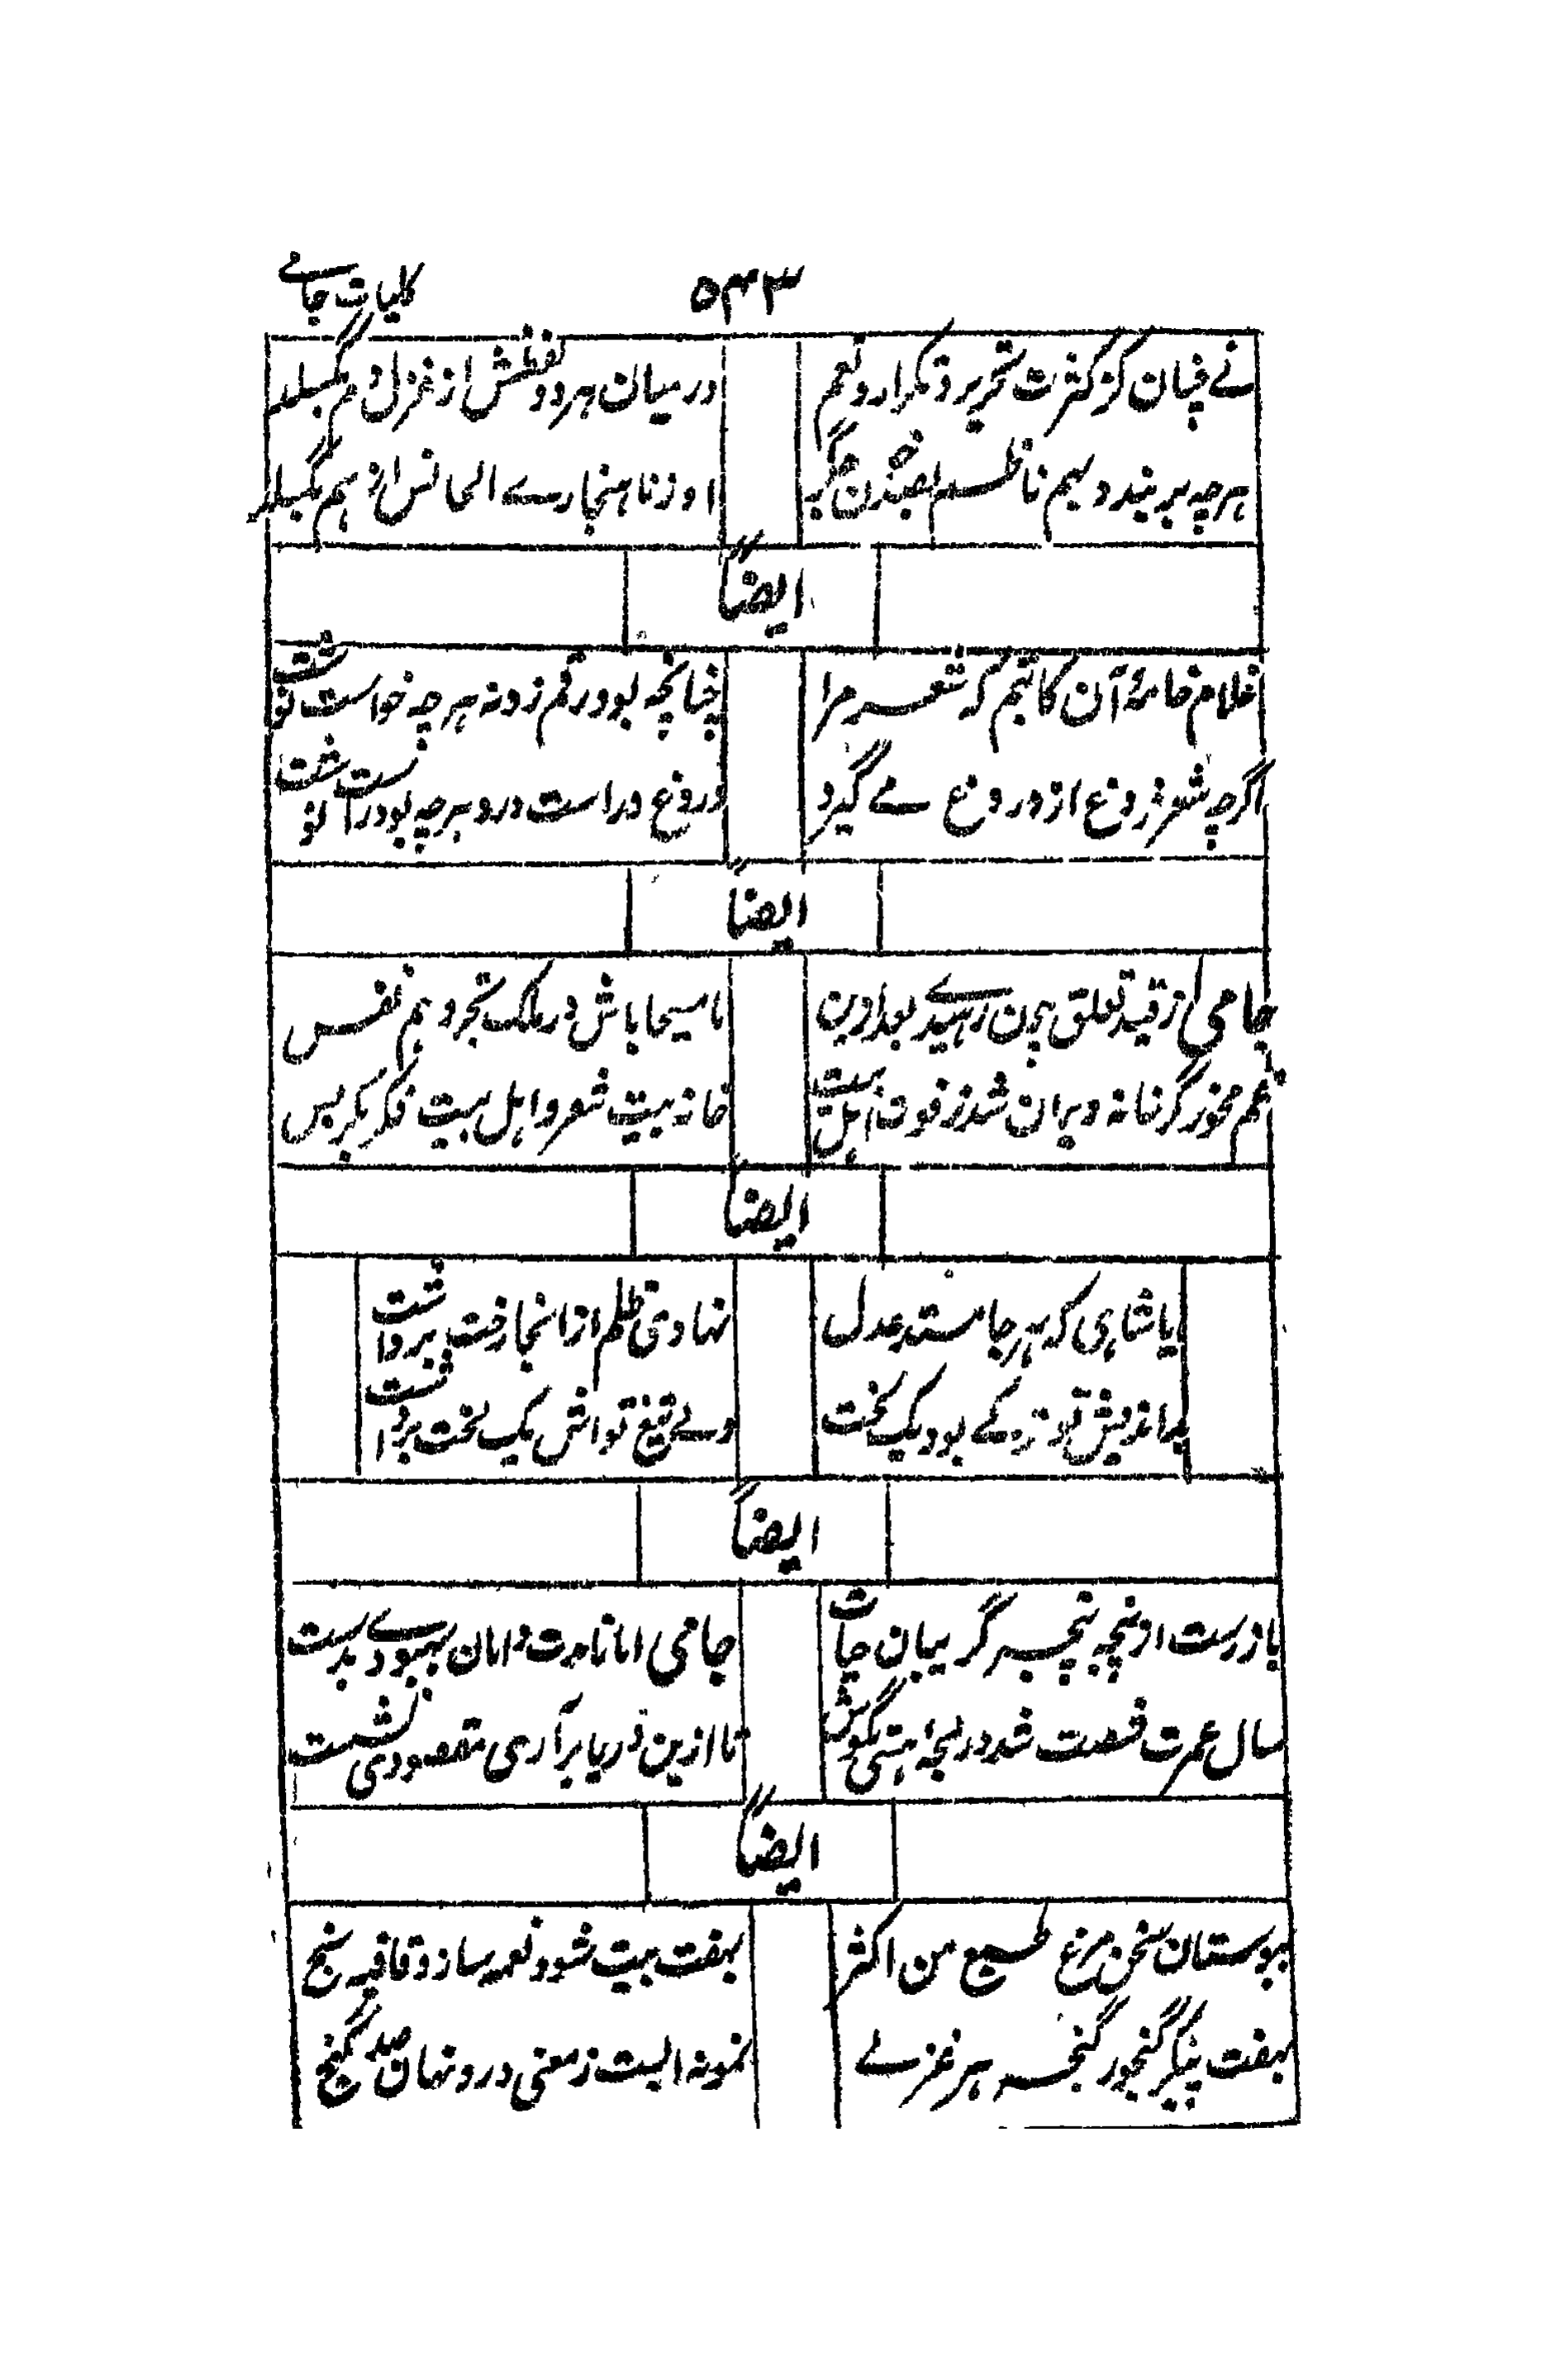 ۵۴۳ کلیات جامے
نے چنان کز کثرت تحریر و تکرار و نعم در میان هر دو لفظش از غزل دم بگسلد
هر چه پر بندد بهم ناظم بصد جگر او ز ناهنجارے الحانش از هم بگسلد
ایضاً
غلام خامهٔ آن کاتبم که شعر مرا چنانچه بود رقم زد نه هر چه خواست نوشت
اگرچه شعر فروغ از دروغ مے گیرد دروغ و راست درو هر چه بود راست نوشت
ایضاً
جامی از قید تعلق چون رهیدے بعد ازین با مسیحا باش در ملک تجرد هم نفس
غم مخور گر خانه ویران شد ز فوت اهل بیت خانه بیت شعر و اهل بیت فکر بکر بس
ایضاً
ایا شاهی که هر جا مسند عدل نهادی ظلم از انجا رخت برداشت
بد اندیش تو زه کے بود یک لخت ولے تیغ تو اش یک لخت برداشت
ایضاً
بازرست از پنجه گریبان حیات جامی اما نامدت دامان بهبودے بدست
سال عمرت شصت شد در لجهٔ هستی بکوش تا ازین دریا برآری مقصودی نشست
ایضاً
ببوستان سخن مرغ طبع من اکثر بهفت بیت شود نغمه ساز و قافیه سنج
بهفت پیکر گنجور گنجه هر غزلے نمونه ایست ز معنی درو نهان صد گنج